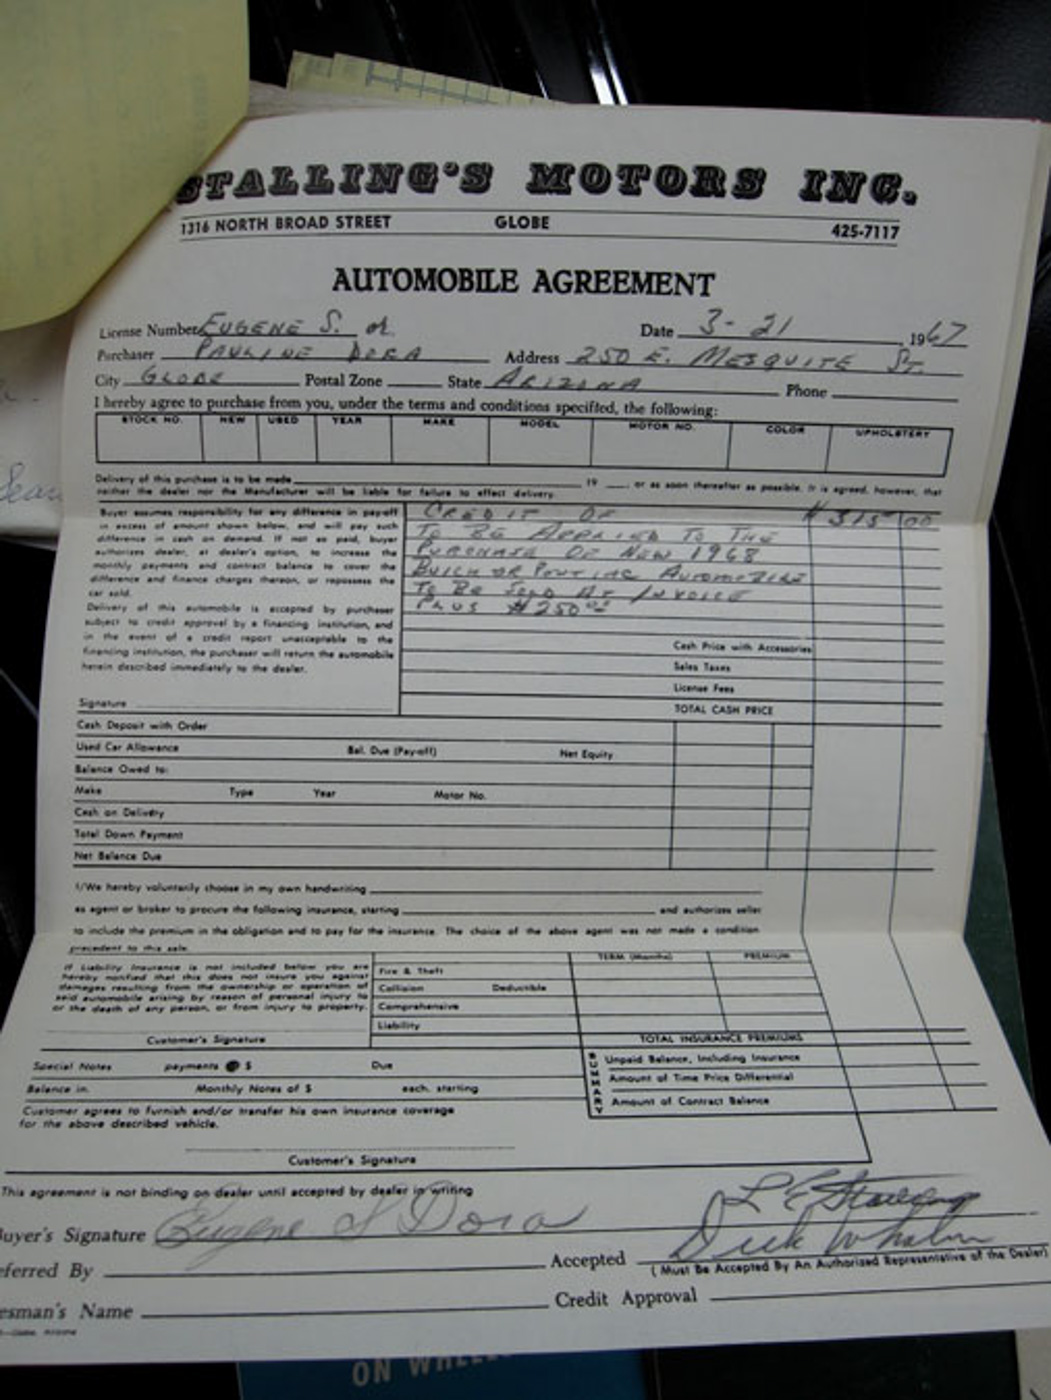 STALLING'S MOTORS INC.
1316 NORTH BROAD STREET GLOBE 425-7117
AUTOMOBILE AGREEMENT
License Number EUGENE S. or Date 3-21, 1967
Purchaser PAULINE DORA Address 250 E. MESQUITE ST.
City GLOBE Postal Zone State ARIZONA Phone
I hereby agree to purchase from you, under the terms and conditions specified, the following:
STOCK NO. NEW USED YEAR MAKE MODEL MOTOR NO. COLOR UPHOLSTERY
Delivery of this purchase is to be made 19 , or as soon thereafter as possible. It is agreed, however, that
neither the dealer nor the Manufacturer will be liable for failure to effect delivery.
Buyer assumes responsibility for any difference in pay-off
in excess of amount shown below, and will pay such
difference in cash on demand. If not so paid, buyer
authorizes dealer, at dealer's option, to increase the
monthly payments and contract balance to cover the
difference and finance charges thereon, or repossess the
car sold.
Delivery of this automobile is accepted by purchaser
subject to credit approval by a financing institution, and
in the event of a credit report unacceptable to the
financing institution, the purchaser will return the automobile
herein described immediately to the dealer.
Signature
CREDIT OF $315 00
TO BE APPLIED TO THE
PURCHASE OF NEW 1968
BUICK OR PONTIAC AUTOMOBILE
TO BE SOLD AT INVOICE
PLUS $250 00
Cash Price with Accessories
Sales Taxes
License Fees
TOTAL CASH PRICE
Cash Deposit with Order
Used Car Allowance Bal. Due (Pay-off) Net Equity
Balance Owed to:
Make Type Year Motor No.
Cash on Delivery
Total Down Payment
Net Balance Due
I/We hereby voluntarily choose in my own handwriting
as agent or broker to procure the following insurance, starting and authorizes seller
to include the premium in the obligation and to pay for the insurance. The choice of the above agent was not made a condition
precedent to this sale.
If Liability Insurance is not included below you are
hereby notified that this does not insure you against
damages resulting from the ownership or operation of
said automobile arising by reason of personal injury to
or the death of any person, or from injury to property.
Customer's Signature
TERM (Months) PREMIUM
Fire & Theft
Collision Deductible
Comprehensive
Liability
TOTAL INSURANCE PREMIUMS
Special Notes payments @ $ Due
Balance in. Monthly Notes of $ each. starting
Customer agrees to furnish and/or transfer his own insurance coverage
for the above described vehicle.
Customer's Signature
SUMMARY
Unpaid Balance, Including Insurance
Amount of Time Price Differential
Amount of Contract Balance
This agreement is not binding on dealer until accepted by dealer in writing
L E Stalling
Buyer's Signature Eugene S Dora
Dick Whalen
eferred By Accepted
(Must Be Accepted By An Authorized Representative of the Dealer)
esman's Name Credit Approval
ON WHEEL